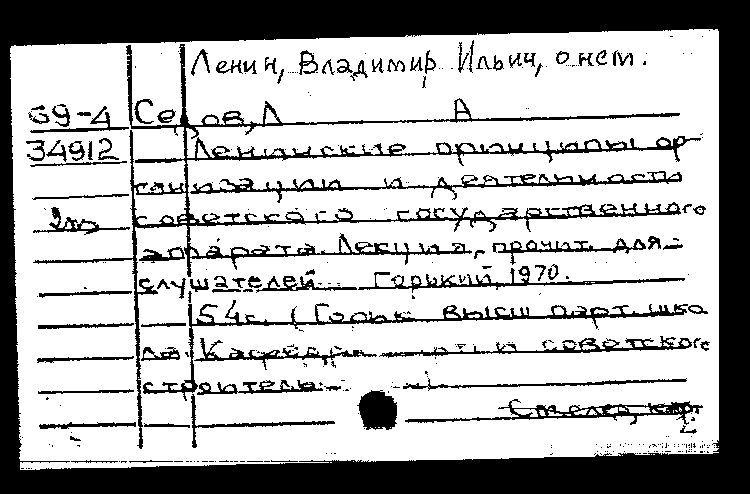 Ленин, Владимир Ильич, о нем.
69-4 А
34912 Ленинские принципы ор-
ганизации и деятельности
2т советского государственного
аппарата. Лекция, прочит. для
слушателей... Горький, 1970.
54с. (Горьк высш парт. шко
ла. Кафедра и советского
строительства